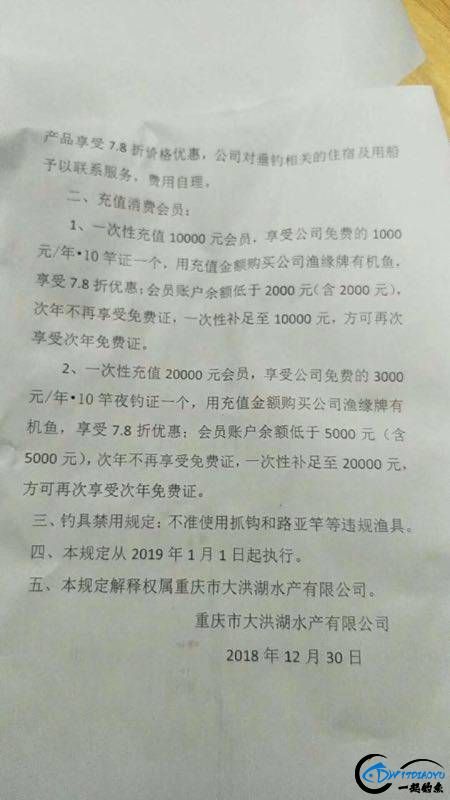 产品享受 7.8 折价格优惠，公司对垂钓相关的住宿及用船
予以联系服务，费用自理。
二、充值消费会员：
1、一次性充值 10000 元会员，享受公司免费的 1000
元/年•10 竿证一个，用充值金额购买公司渔缘牌有机鱼，
享受 7.8 折优惠；会员账户余额低于 2000 元（含 2000 元），
次年不再享受免费证，一次性补足至 10000 元，方可再次
享受次年免费证。
2、一次性充值 20000 元会员，享受公司免费的 3000
元/年•10 竿夜钓证一个，用充值金额购买公司渔缘牌有
机鱼，享受 7.8 折优惠；会员账户余额低于 5000 元（含
5000 元），次年不再享受免费证，一次性补足至 20000 元，
方可再次享受次年免费证。
三、钓具禁用规定：不准使用抓钩和路亚竿等违规渔具。
四、本规定从 2019 年 1 月 1 日起执行。
五、本规定解释权属重庆市大洪湖水产有限公司。
重庆市大洪湖水产有限公司
2018 年 12 月 30 日
W17DIAOYU
一起钓鱼